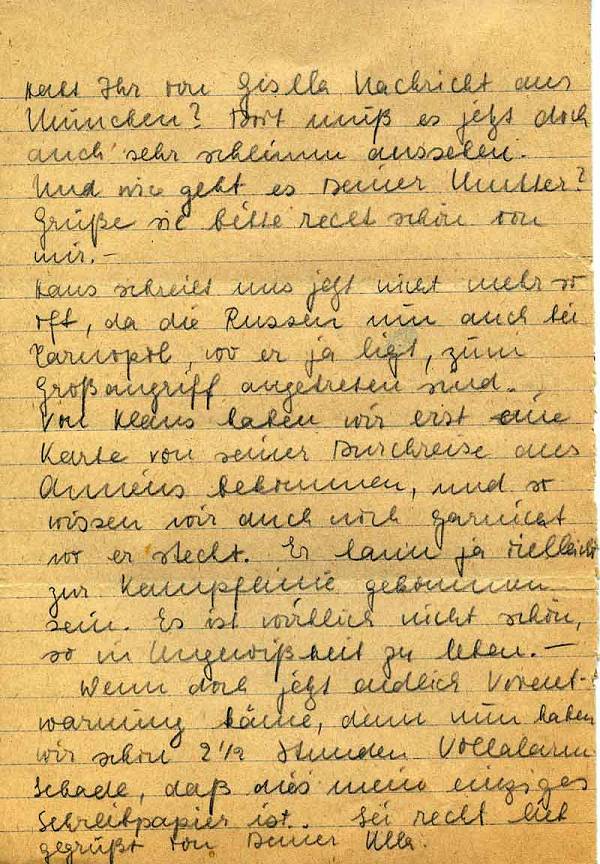 Habt Ihr von Gisella Nachricht aus
München? Dort muß es jetzt doch
auch sehr schlimm aussehen.
Und wie geht es Deiner Mutter?
Grüße sie bitte recht schön von
mir.-
Hans schreibt uns jetzt nicht mehr so
oft, da die Russen nun auch bei
Tarnopol, wo er ja ligt, zum
Großangriff angetreten sind.
Von Klaus haben wir erst eine
Karte von seiner Durchreise aus
Amiens bekommen, und so
wissen wir auch noch garnicht
wo er steckt. Er kann ja vielleicht
zur Kampflinie gekommen
sein. Es ist wirklich nicht schön,
so in Ungewißheit zu leben.-
Wenn doch jetzt endlich Vorent-
warnung käme, denn nun haben
wir schon 2 1/2 Stunden Vollalarm.
Schade, daß dies mein einziges
Schreibpapier ist. Sei recht lieb
gegrüßt von Deiner Ulla.